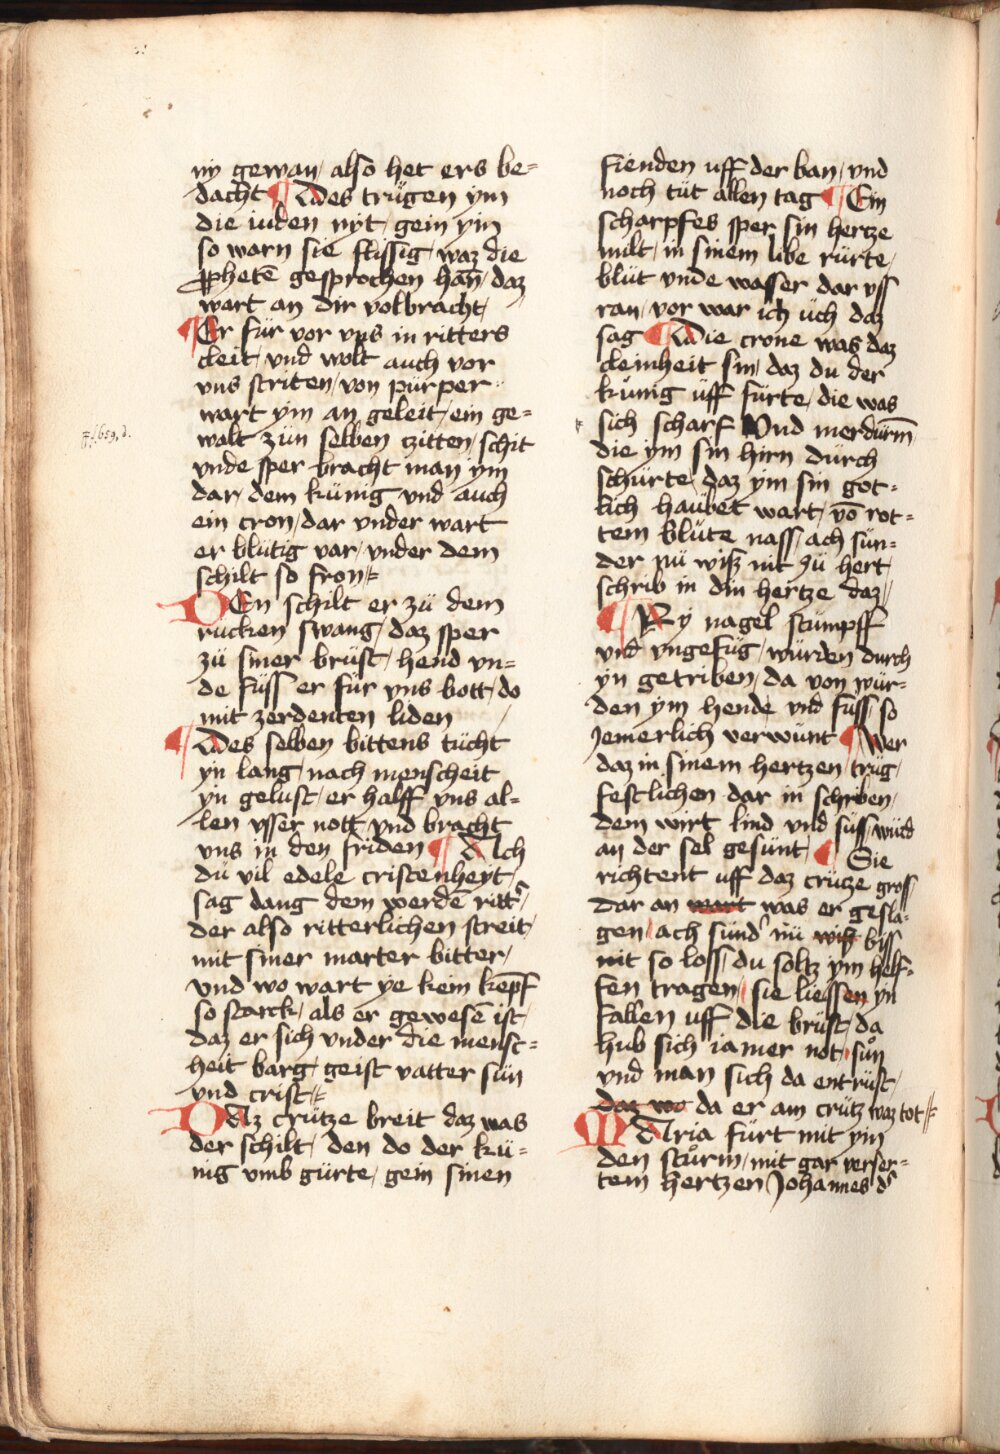 ny gewan / also het ers be=
dacht ¶ Des trůgen ym
die iuden nyt / gein yin
so warn sie flissig / waz die
ꝓphetē gesprochen hān / daz
wart an dir volbracht /
¶ Er für vor vns in ritters
cleit / vnd wolt auch vor
vns striten / von pürper
wart ym an geleit / ein ge=
walt zün selben czitten / schit
vnde sper bracht man ym
dar / dem künig vnd auch
ein cron / dar vnder wart
er blütig var / vnder dem
schilt so fron //=
DEn schilt er zü dem
rucken swang / daz sper
zü siner brüst / hend vn=
de füss er für vns bott / do
mit zerdenten liden /
¶ Des selben bittens tücht
yn lang / nach menscheit
yn gelust / er halff vns al=
len vsser nott / vnd bracht
vns in den friden ¶ Ach
dü vil edele cristenheyt /
sag dang dem werdē ritt'/
der also ritterlichen streit /
mit siner marter bitter /
vnd wo wart ye kein kēpf
so starck / als er gewesē ist /
daz er sich vnder die mensc=
heit barg / geist vatter sün
vnd crist //=
DAz crütze breit daz was
der schilt / den do der kü=
nig vmb gürte / gein sinen
fienden uff der ban / vnd
noch tüt allen tag ¶ Ein
scharpfes sper sin hertze
milt / in sinem libe rürte /
blüt vnde wasser dar vss
ran / vor war ich üch daz
sag ¶ Die crone was daz
cleinheit sin / daz du der
künig üff fürte / die was
sich scharf Vnd merdürm̄
die ym sin hirn dürch
schürte / daz ym sin got=
lich haübet wart / vō rot=
tem blüte nass / ach sün=
der nü wiß nit zü hert
schrib in din hertze daz //
¶ Ry nagel stümpff
vnd vngefüg / würden durch
yn getriben / da von wür=
den ym hende vnd füss / so
Jemerlich verwünt ¶ Wer
daz in sinem hertzen trüg /
festlichen dar in schriben /
dem wirt lind vnd süss / würd
an der sel gesünt / ¶ Sie
richtent uff daz crütze gross /
Dar an wart was er gesla=
gen / ach sünd' nü wiß biss
nit so loss / du soltz ym helf=
fen tragen / sie liessen yn
fallen uff die brüst / da
hub sich iamer not / sůn
vnd man sich da entrüst /
daz wo da er am crütz waz tot //=
MAria fürt mit yin
den stůrm / mit gar verser=
tem hertzen / Johannes d'